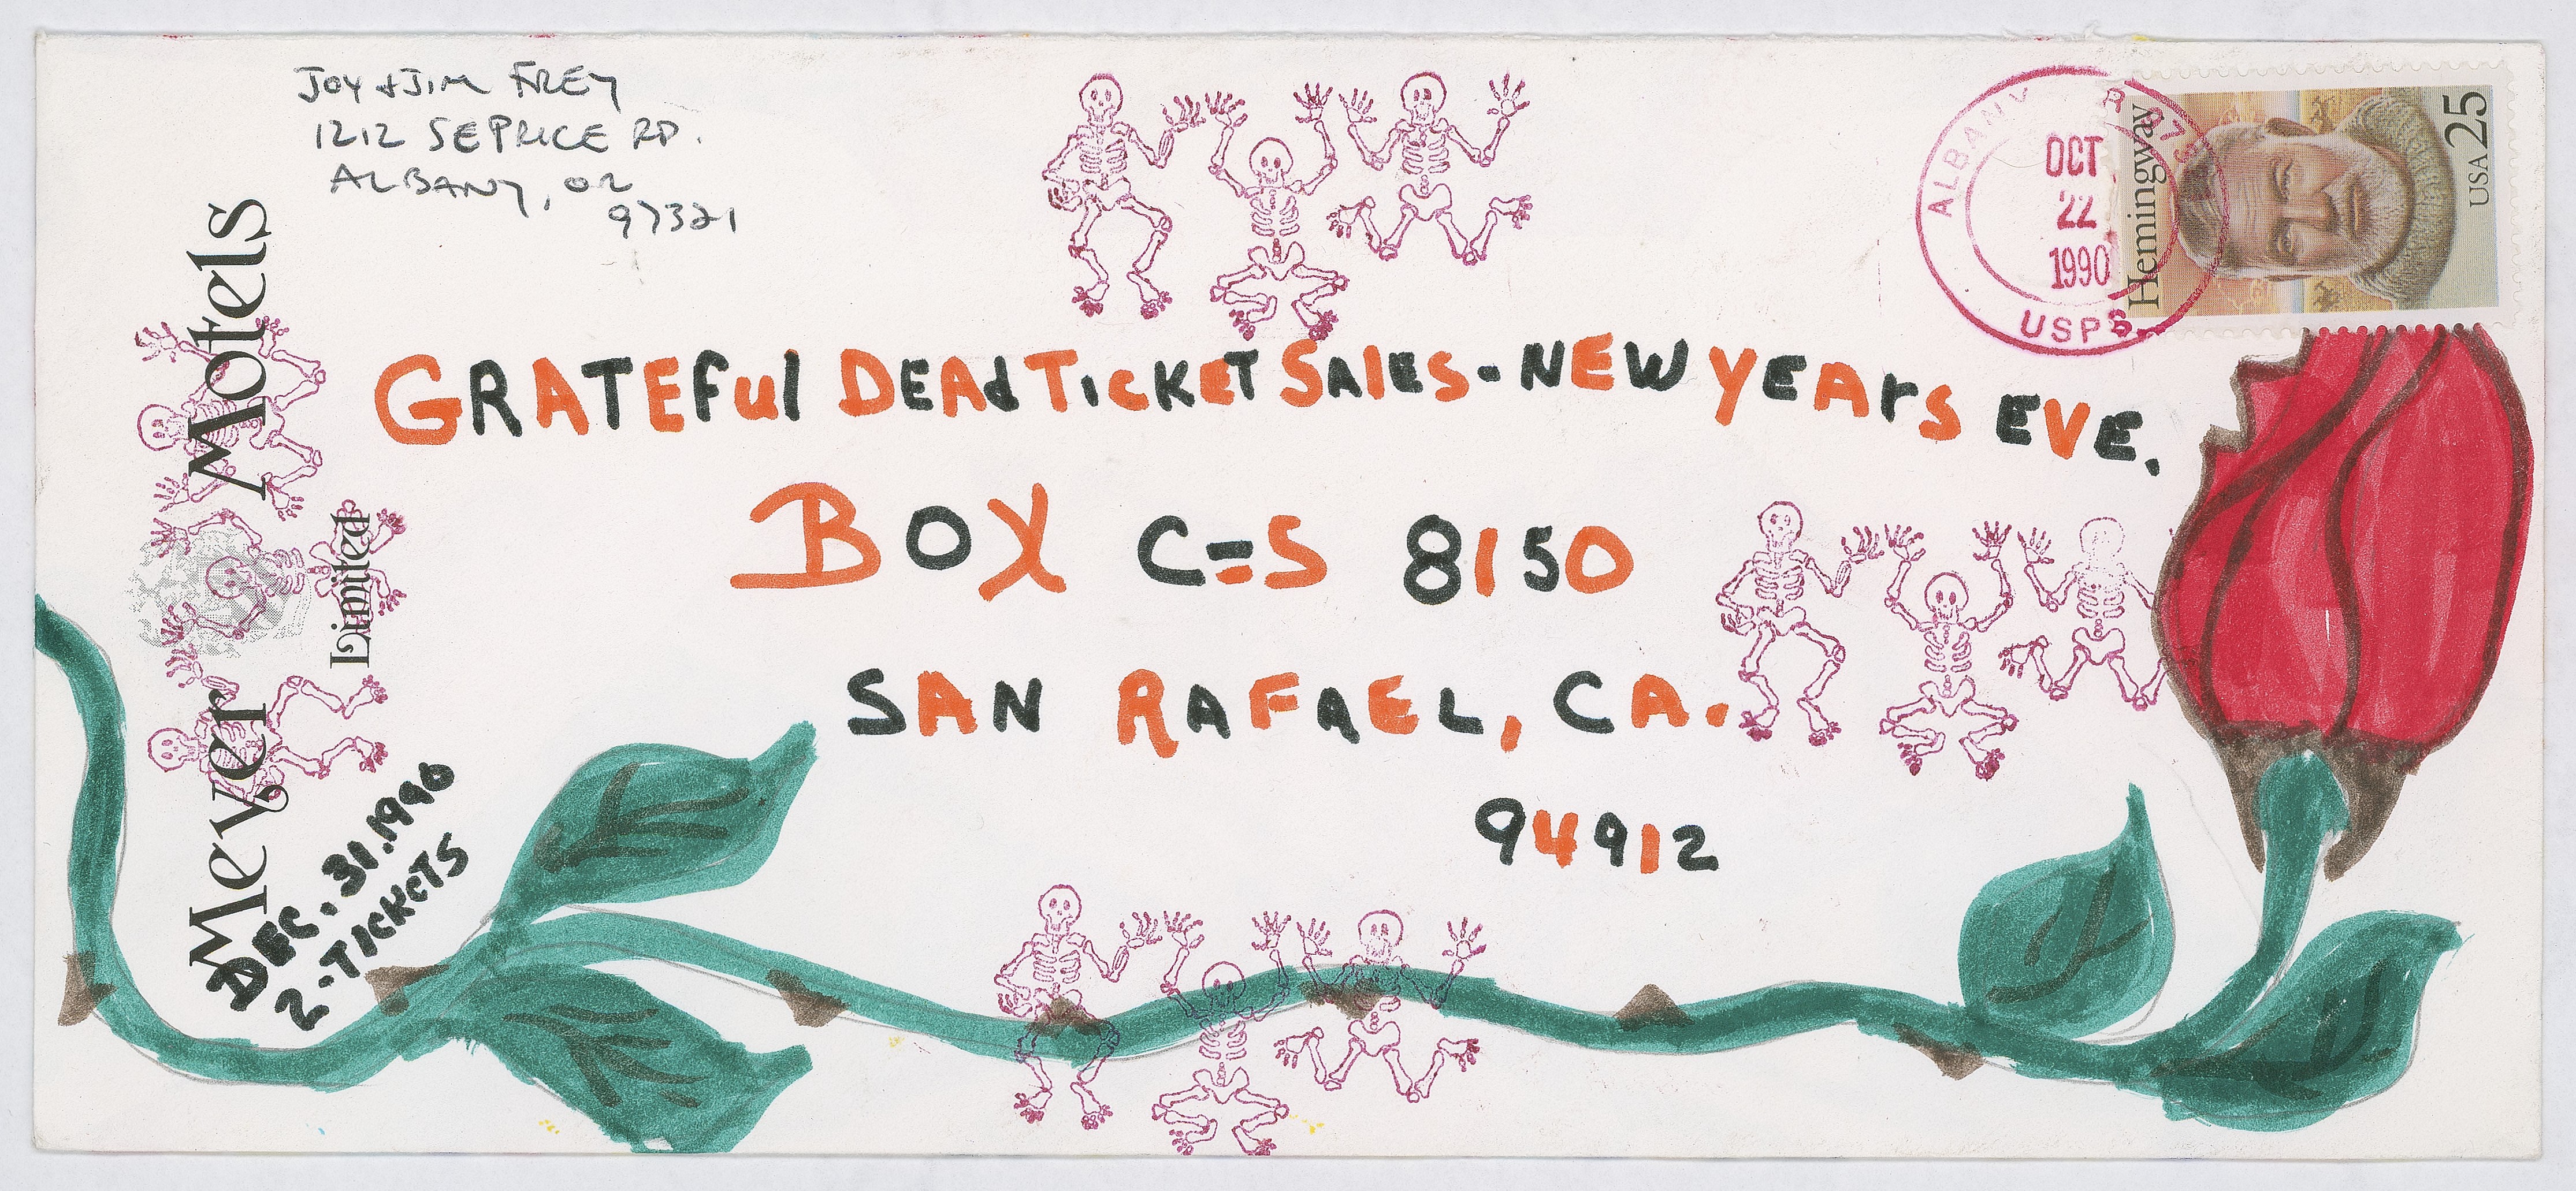 Joy + Jim Frey
1212 SE PRICE RD.
ALBANY, OR
97321
ALBANY OR 973
OCT
22
1990
USPS
Hemingway
USA 25
GRATEful DEAd TickET SAlEs - NEW YEArs EVE.
BOX C=S 8150
SAN RAFAEL, CA.
94912
Meyer Motels
Limited
DEC. 31, 1990
2-TICKETS